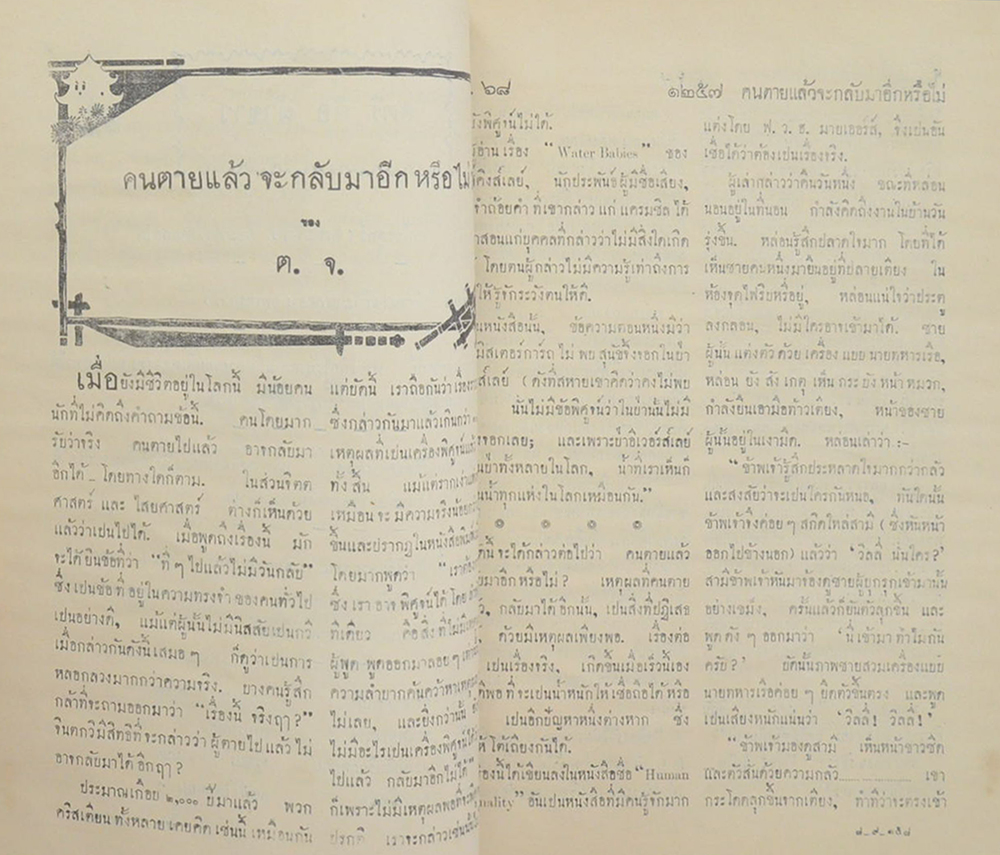 คนตายแล้วจะกลับมาอีกหรือไม่
ของ
ต. จ.
เมื่อยังมีชีวิตอยู่ในโลกนี้ มีน้อยคน
นักที่ไม่คิดถึงคำถามข้อนี้. คนโดยมาก
รับว่าจริง คนตายไปแล้ว อาจกลับมา
อีกได้ โดยทางใดก็ตาม. ในส่วนจิตต
ศาสตร์ และ ไสยศาสตร์ ต่างก็เห็นด้วย
แล้วว่าเป็นไปได้. เมื่อพูดถึงเรื่องนี้ มัก
จะได้ยินข้อที่ว่า “ที่ ๆ ไปแล้วไม่มีวันกลับ”
ซึ่งเป็นข้อที่อยู่ในความทรงจำของคนทั่วไป
เป็นอย่างดี, แม้แต่ผู้นั้นไม่มีนิสสัยเป็นกวี
เมื่อกล่าวกันดังนี้เสมอ ๆ ก็ดูว่าเป็นการ
หลอกลวงมากกว่าความจริง. บางคนรู้สึก
กล้าที่จะถามออกมาว่า “เรื่องนี้ จริงฤๅ?”
จินตกวีมีสิทธิที่จะกล่าวว่า ผู้ตายไปแล้วไม่
อาจกลับมาได้อีกฤๅ?
ประมาณเกือบ ๒,๐๐๐ ปีมาแล้ว พวก
คริสเตียนทั้งหลาย เคยคิดเช่นนี้ เหมือนกัน
แต่บัดนี้ เราถือกันว่าเรื่อง
ซึ่งกล่าวกันมาแล้วเกินกว่า
เหตุผลที่เป็นเครื่องพิศูจน์
ทั้งสิ้น แม้แต่ราก
เหมือนจะมีความจริงน้อย
ขึ้นและปรากฏในหนังสือพิมพ์
โดยมากพูดว่า “เรา
ซึ่งเราอาจพิศูจน์ได้ โดย
ทีเดียว คือสิ่งที่ไม่มี
ผู้พูดพูดออกมาลอย ๆ
ความลำบากค้นคว้าหา
ไม่เลย, และยิ่งกว่านั้น
ไม่มีอะไรเป็นเครื่องพิศูจน์
ไปแล้วกลับมาอีกไม่ได้”
ก็เพราะไม่มีเหตุผลพอที่จะ
ปรกติ เราจะกล่าวเช่นนั้น
๖๘
พิศูจน์ไม่ได้.
อ่านเรื่อง “Water Babies” ของ
คิงส์เลย์, นักประพันธ์ผู้มีชื่อเสียง,
ถ้อยคำ ที่เขากล่าว แก่ แครมซิล ได้
สอนแก่บุคคลที่กล่าวว่าไม่มีสิ่งใดเกิด
โดยตนผู้กล่าวไม่มีความรู้เท่าถึงการ
ให้รู้จักระวังตนให้ดี.
หนังสือนั้น, ข้อความตอนหนึ่งมีว่า
มิสเตอร์การ์ถ ไม่ พบ สุนัขจิ้งจอกในป่า
ส์เลย์ (ดังที่สหายเขาคิดว่าคงไม่พบ
นั้นไม่มีข้อพิศูจน์ว่าในป่านั้นไม่มี
จอกเลย; และเพราะป่าอิเวอร์สเลย์
ป่าทั้งหลายในโลก, น้ำที่เราเห็นก็
น้ำทุกแห่งในโลกเหมือนกัน.”
นี้จะได้กล่าวต่อไปว่า คนตายแล้ว
มาอีกหรือไม่? เหตุผลที่คนตาย
กลับมาได้อีกนั้น, เป็นสิ่งที่ปฏิเสธ
ด้วยมีเหตุผลเพียงพอ. เรื่องต่อ
เป็นเรื่องจริง, เกิดขึ้นเมื่อเร็วนี้เอง
พอที่จะเป็นน้ำหนักให้เชื่อถือได้ หรือ
เป็นอีกปัญหาหนึ่งต่างหาก ซึ่ง
ให้โต้เถียงกันได้.
เรื่องนี้ได้เขียนลงในหนังสือชื่อ “Human
nality” อันเป็นหนังสือที่มีคนรู้จักมาก
๑๒๕๗ คนตายแล้วจะกลับมาอีกหรือไม่
แต่งโดย ฟ. ว. ฮ. มายเออร์ส์, จึงเป็นอัน
เชื่อได้ว่าต้องเป็นเรื่องจริง.
ผู้เล่ากล่าวว่าคืนวันหนึ่ง ขณะที่หล่อน
นอนอยู่ในที่นอน กำลังคิดถึงงานในบ้านวัน
รุ่งขึ้น. หล่อนรู้สึกปลาดใจมาก โดยที่ได้
เห็นชายคนหนึ่งมายืนอยู่ที่ปลายเตียง ใน
ห้องจุดไฟริบหรี่อยู่, หล่อนแน่ใจว่าประตู
ลงกลอน, ไม่มีใครอาจเข้ามาได้. ชาย
ผู้นั้นแต่งตัวด้วยเครื่องแบบนายทหารเรือ,
หล่อน ยัง สังเกตุ เห็น กระบังหน้าหมวก,
กำลังยืนเอามือท้าวเตียง, หน้าของชาย
ผู้นั้นอยู่ในเงามืด. หล่อนเล่าว่า :-
“ข้าพเจ้ารู้สึกประหลาดใจมากกว่ากลัว
และสงสัยว่าจะเป็นใครกันหนอ, ทันใดนั้น
ข้าพเจ้าจึงค่อย ๆ สกิดไหล่สามี (ซึ่งหันหน้า
ออกไปข้างนอก) แล้วว่า ‘วิลลี่ นั่นใคร?’
สามีข้าพเจ้าหันมาจ้องดูชายผู้บุกรุกเข้ามานั้น
อย่างเขม็ง, ครั้นแล้วก็ยันตัวลุกขึ้น และ
พูดดัง ๆ ออกมาว่า ‘นี่เข้ามาทำไมกัน
ครับ?’ บัดนั้นภาพชายสวมเครื่องแบบ
นายทหารเรือค่อย ๆ ยืดตัวขึ้นตรง และพูด
เป็นเสียงหนักแน่นว่า ‘วิลลี่! วิลลี่!’
“ข้าพเจ้ามองดูสามี เห็นหน้าขาวซีด
และตัวสั่นด้วยความกลัว เขา
กระโดดลุกขึ้นจากเตียง, ทำทีว่าจะตรงเข้า